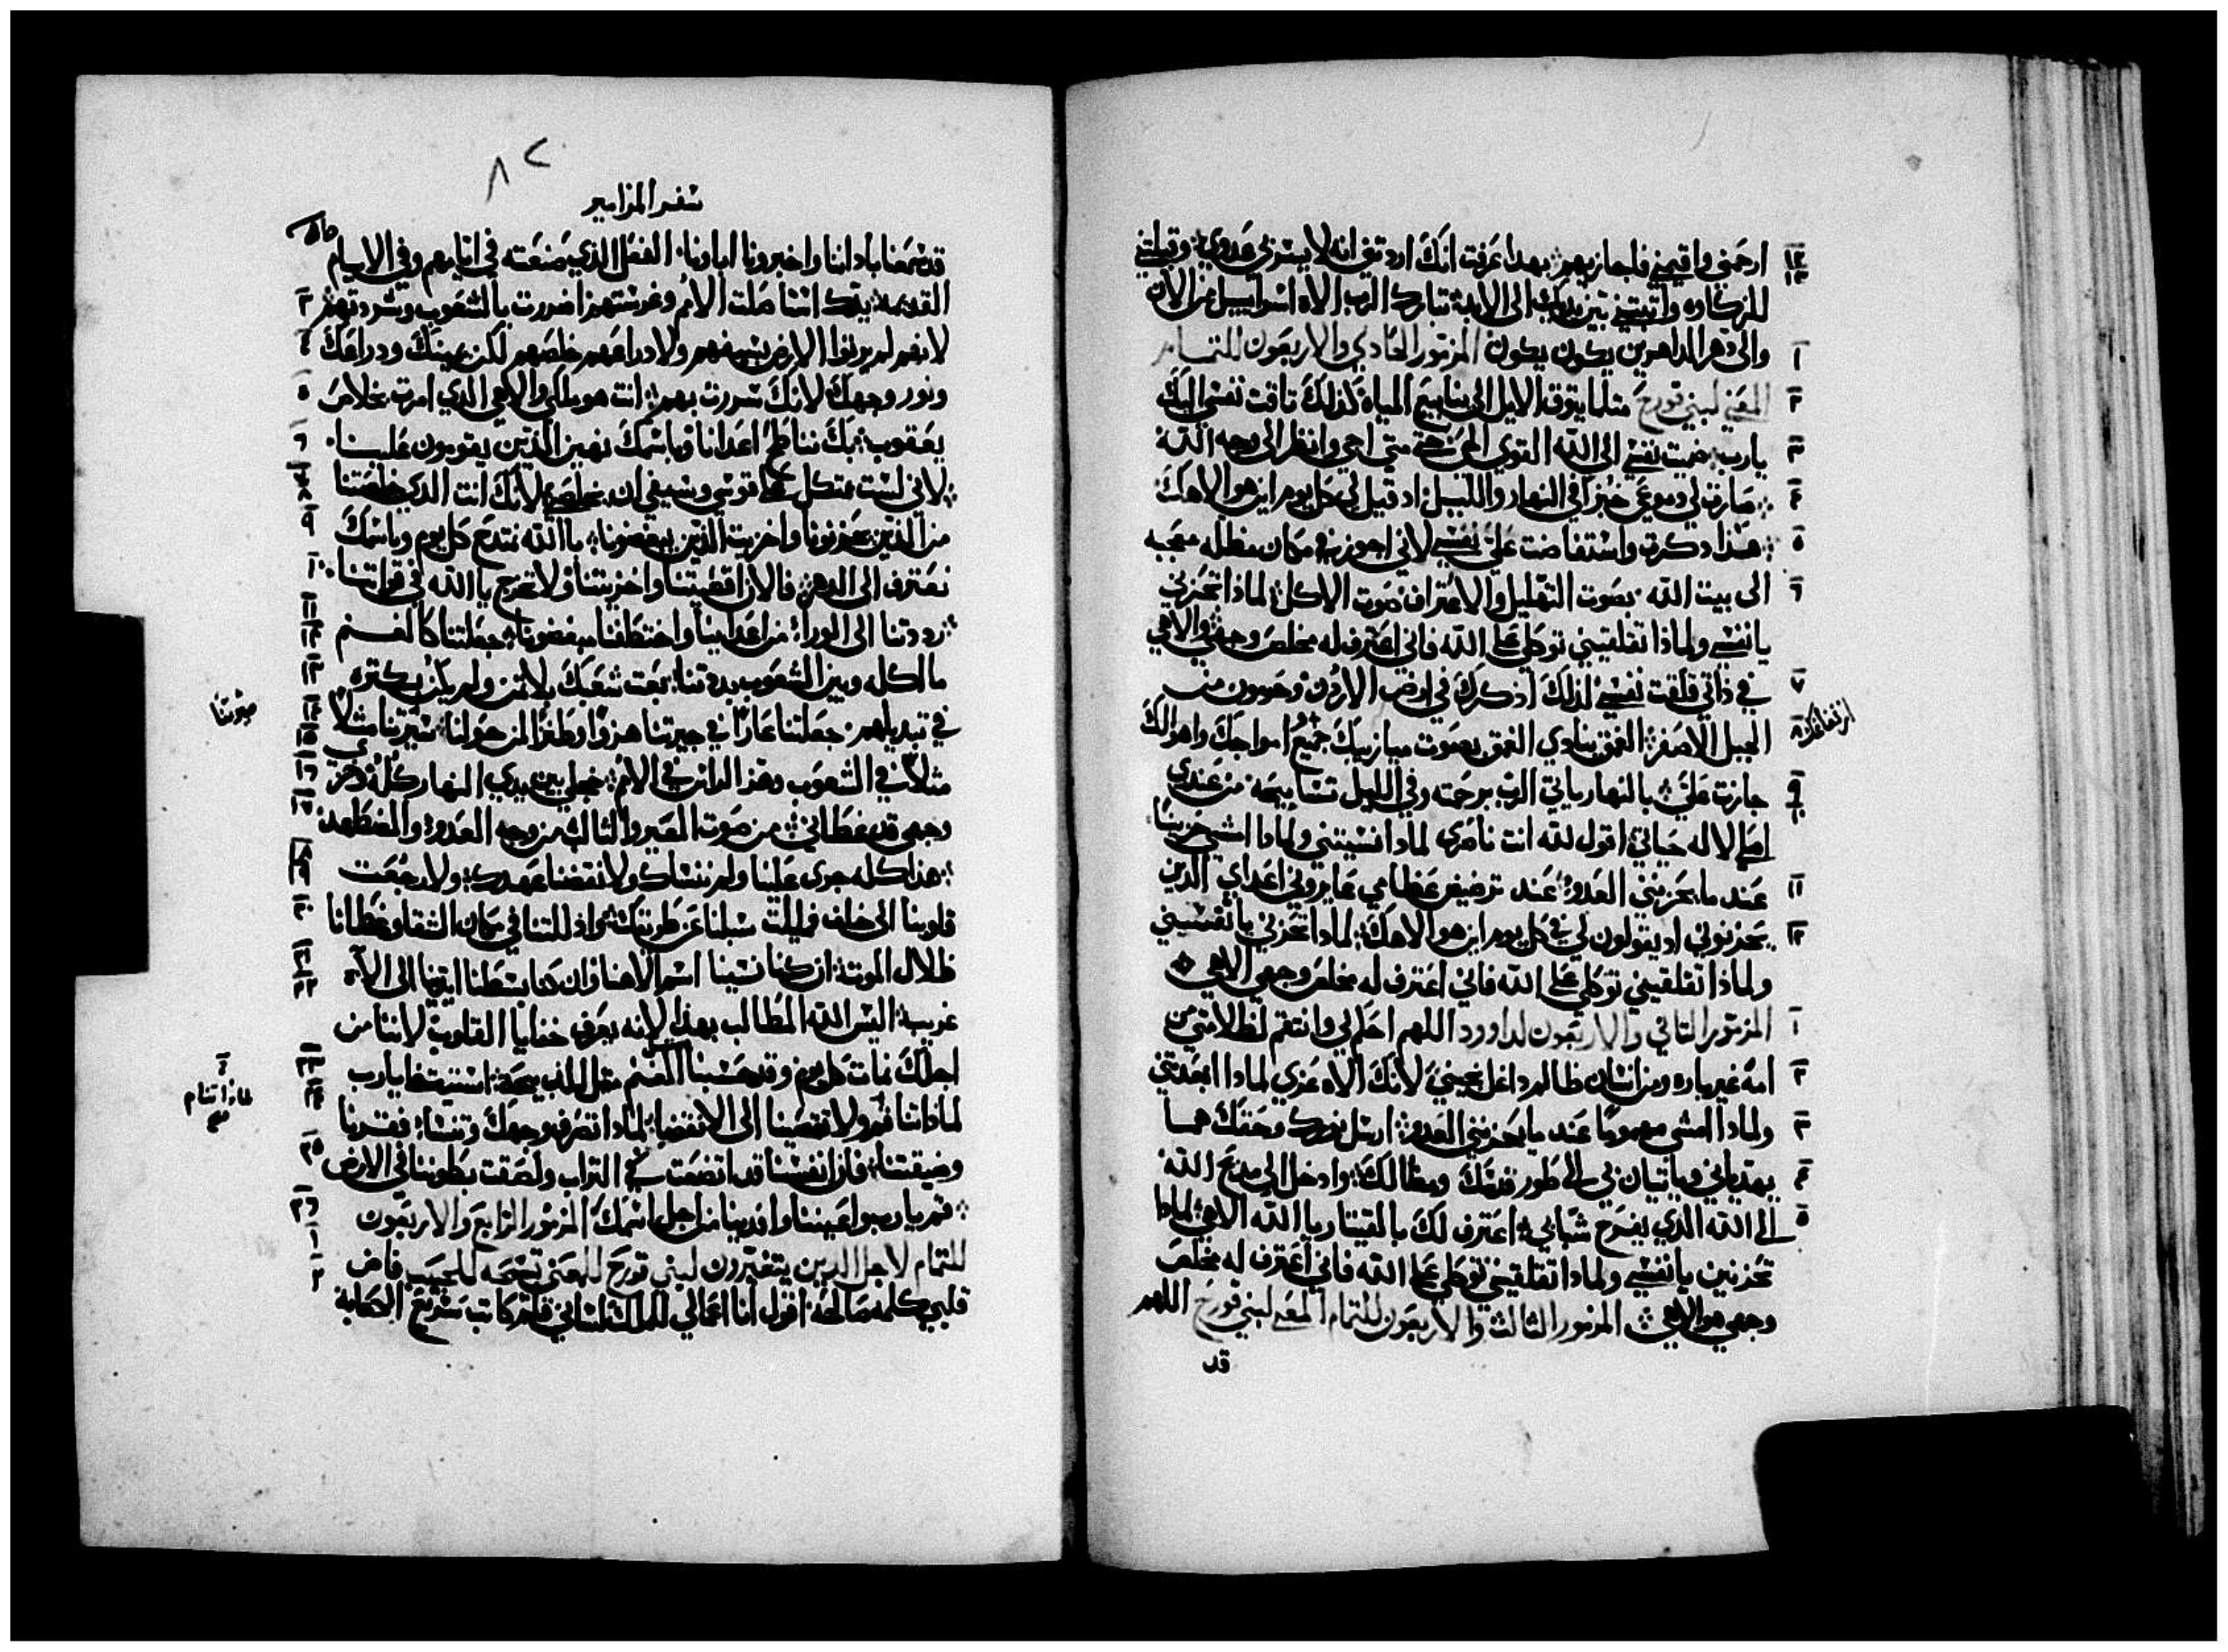 ارحمني واقيمني فاجازيهم بهدا عرفت انك اردتني انه لا يسر بي عدوي وقبلتني
للزكاوه واتبتني بين يديك الى الابد تبارك الرب الاه اسراييل من الان
والى دهر الداهرين يكون يكون المزمور الحادي والاربعون للتمام
المعني لبني قورح متلما يتوق الايل الى ينابيع المياه كذلك تاقت نفسي اليك
يارب نفسي الى الله القوي الحي متى اجي وانظر الى وجه الله
صارت لي دموعي خبزا في النهار والليل اد قيل لي كل يوم اين هو الاهك
هذا دكرت واستفاضت علي نفسي لاني اجوز في مكان مظله عجبه
الى بيت الله بصوت التهليل والاعتراف صوت الاكل لماذا تحزني
يا نفسي ولماذا تقلقيني توكلي على الله فاني اعترف له مخلص وجهي والاهي
في ذاتي قلقت نفسي لذلك ادكرك في ارض الاردن وحرمون من
الجبل الاصغر الغمق ينادي الغمق بصوت ميازيبك جميع امواجك واهوالك
جازت علي بالنهار ياتي الرب برحمته وفي الليل تسابيحه من عندي
الاله حياتي اقول لله انت ناصري لمادا نسيتني ولمادا امشي حزينا
عند ما يحزنني العدو عند ترضيض عظامي عايروني اعداي الدين
يحزنوني اد يقولون لي في كل يوم اين هو الاهك لمادا تحزني يا نفسي
ولماذا تقلقيني توكلي على الله فاني اعترف له مخلص وجهي الاهي
المزمور التاني والاربعون لداوود اللهم احكم لي وانتقم لظلامتي من
امه غير باره ومن انسان ظالم داغل نجيني لانك الاه عزي لمادا ابعدتني
ولمادا امشي مهموما عند ما يحزنني العدو ارسل نورك وحقك هما
يهدياني وياتيان بي الى طور قدسك ومظالك وادخل الى مدبح الله
الى الله الذي يفرح شبابي اعترف لك بالقيتار يا الله الاهي لمادا
تحزنين يا نفسي ولمادا تقلقيني توكلي على الله فاني اعترف له مخلص
وجهي هو الاهي المزمور الثالث والاربعون للتمام المعني لبني قورح اللهم
قد
سفر المزامير
قد سمعنا باداننا واخبرونا اباونا الفعل الذي صنعته في ايامهم وفي الايام
القديمه يدك الامم وغرستهم اضررت بالشعوب وشردتهم
لانهم لم يرتوا الارض بسيفهم ولا دراعهم خلصهم لكن يمينك ودراعك
ونور وجهك لانك سررت بهم انت هو ملكي والاهي الذي امرت بخلاص
يعقوب بك نناطح اعدانا وباسمك نهين الذين يقومون علينا
لاني لست متكل على قوسي وسيفي لن يخلصني لانك انت الدي خلصتنا
من الذين يحزنونا واخزيت الذين يبغضونا بالله نمتدح كل يوم وباسمك
نعترف الى الدهر فالان اقصيتنا واخزيتنا ولا تخرج يا الله في قواتنا
رددتنا الى الورا من اعداينا واختطفنا مبغضونا جعلتنا كالغنم
مالكله وبين الشعوب بددتنا بعت شعبك بلا تمن ولم يكن كتره
في تبديلهم جعلتنا عارا في جيرتنا هزوا وطنزا لمن حولنا سيرتنا مثلا
مثلا في الشعوب وهز الراس في الامم خجلي بين يدي النهار كله وخزي
وجهي قد غطاني من صوت المعير والثالب من وجه العدو والمضطهد
هذا كله جرى علينا ولم ننساك ولا نقضنا عهدك ولا رجعت
قلوبنا الى خلف فميلت سبلنا عن طريقك واذ للتنا في مكان الشقا وغطانا
ظلال الموت ان كنا نسينا اسم الاهنا وان كنا بسطنا ايدينا الى الاه
غريب اليس الله المطالب بهذا لانه يعرف خفايا القلوب لاننا من
اجلك نمات كل يوم وقد حسبنا الغنم متل للدبيحه استيقظ يارب
لماذا تنام قم ولا تقصينا الى الانقضا لمادا تصرف وجهك وتنسا فقرنا
وضيقتنا فان انفسنا قد اتضعت في التراب ولصقت بطوننا في الارض
قم يا رب واعيننا وافدينا من اجل اسمك المزمور الرابع والاربعون
للتمام لاجل الدين يتغيرون لبني قورح للمعنى تسبحه للحبيب فاض
قلبي كلمه صالحه اقول انا اعمالي للملك لساني قلم كاتب سريع الكتابة